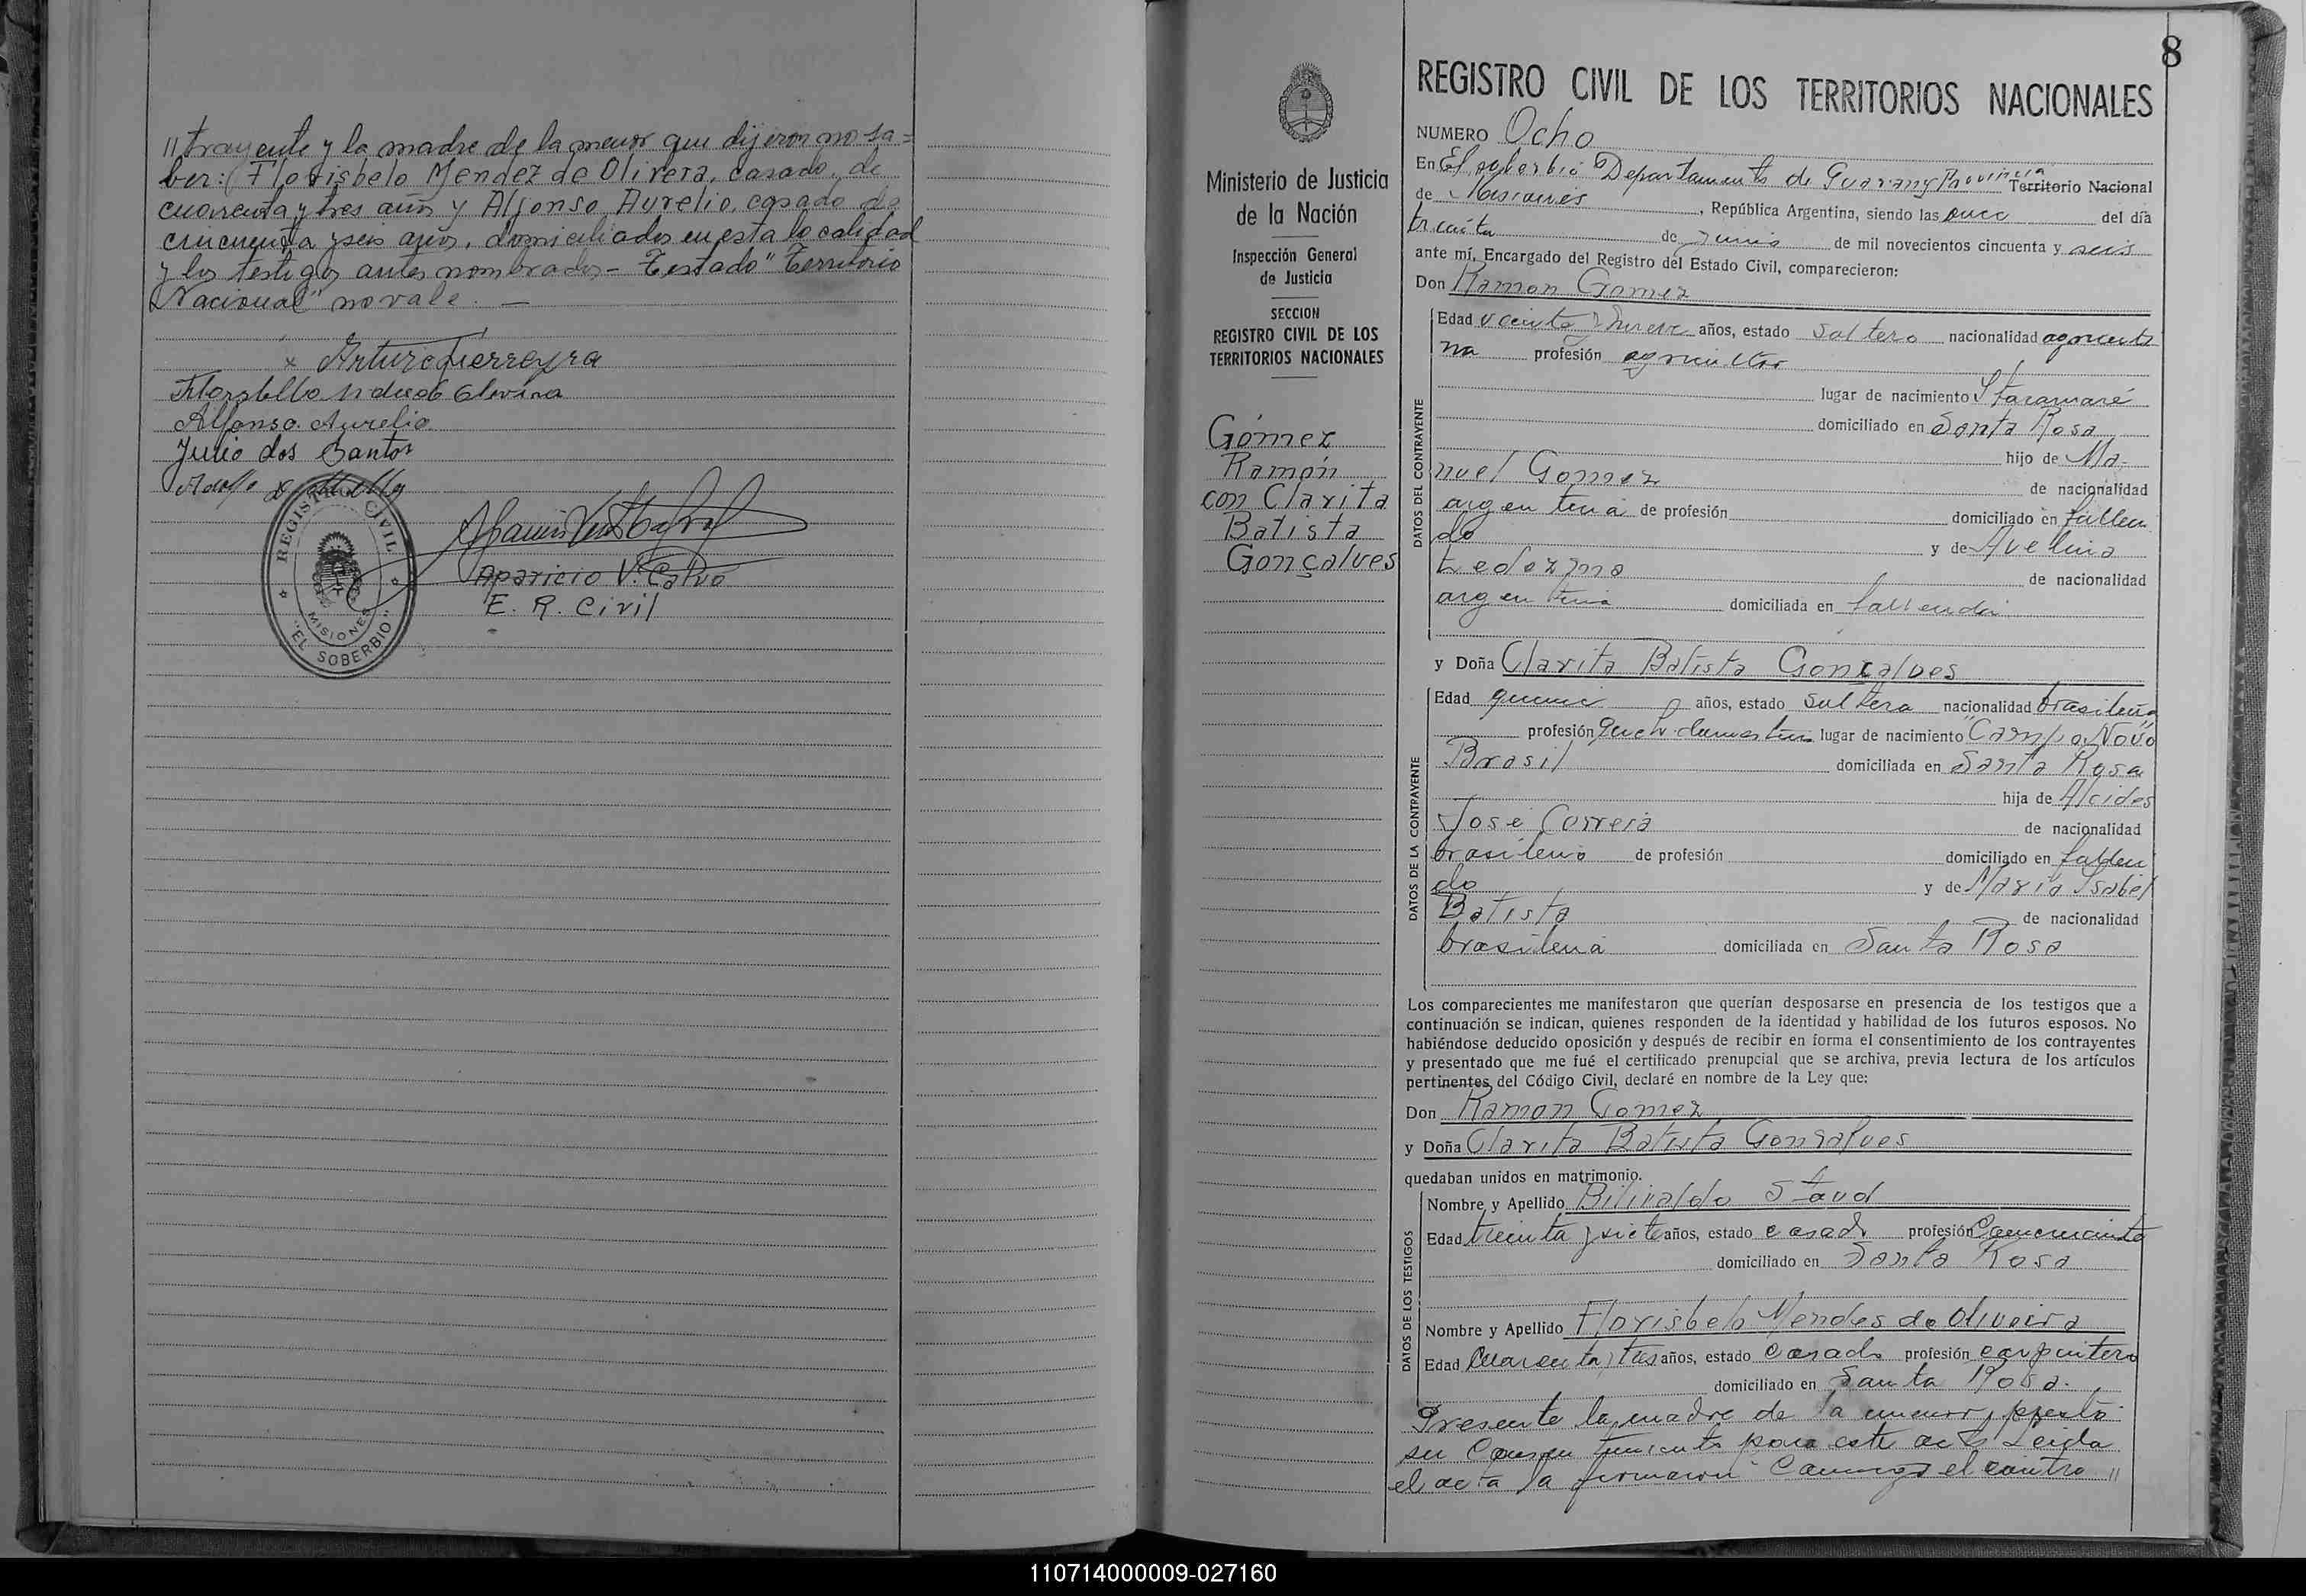 // trayente y la madre de la menor que dijeron no sa=
ber: Florisbelo Mendez de Olivera, casado, de
cuarenta y tres años y Alfonso Aurelio, casado de
cincuenta y seis años, domiciliados en esta localidad
y los testigos antes nombrados - Testado "Territorio
Nacional" no vale. —
x Arturo Fierreyra
Alfonso Aurelio
Julio dos Santos
REGISTRO CIVIL
MISIONES
"EL SOBERBIO"
Aparicio V. Calvo
E. R. Civil
8
Ministerio de Justicia
de la Nación
Inspección General
de Justicia
SECCION
REGISTRO CIVIL DE LOS
TERRITORIOS NACIONALES
Gómez
Ramón
con Clarita
Batista
Gonçalves
REGISTRO CIVIL DE LOS TERRITORIOS NACIONALES
NUMERO Ocho
En El soberbio Departamento de Guarany Provincia Territorio Nacional
de Misiones, República Argentina, siendo las once del día
treinta de Junio de mil novecientos cincuenta y seis
ante mí, Encargado del Registro del Estado Civil, comparecieron:
Don Ramon Gomez
DATOS DEL CONTRAYENTE
Edad veinte y nueve años, estado soltero nacionalidad argenti
na profesión agricultor
lugar de nacimiento Itacaruaré
domiciliado en Santa Rosa
hijo de Ma-
nuel Gomez de nacionalidad
argentina de profesión domiciliado en falleci
do y de Avelina
Ledezma de nacionalidad
argentina domiciliada en fallecida
y Doña Clarita Batista Gonçalves
DATOS DE LA CONTRAYENTE
Edad quince años, estado soltera nacionalidad brasileña
profesión Queh. domesticos lugar de nacimiento "Campo Novo"
Brasil domiciliada en Santa Rosa
hija de Alcides
José Correia de nacionalidad
brasileño de profesión domiciliado en falleci
do y de María Isabel
Batista de nacionalidad
brasileña domiciliada en Santa Rosa
Los comparecientes me manifestaron que querían desposarse en presencia de los testigos que a
continuación se indican, quienes responden de la identidad y habilidad de los futuros esposos. No
habiéndose deducido oposición y después de recibir en forma el consentimiento de los contrayentes
y presentado que me fué el certificado prenupcial que se archiva, previa lectura de los artículos
pertinentes del Código Civil, declaré en nombre de la Ley que:
Don Ramon Gomez
y Doña Clarita Batista Gonsalves
quedaban unidos en matrimonio.
DATOS DE LOS TESTIGOS
Nombre y Apellido Bilivaldo Staud
Edad treinta y siete años, estado casado profesión Comerciante
domiciliado en Santa Rosa
Nombre y Apellido Florisbelo Mendes de Oliveira
Edad Cuarenta y tres años, estado casado profesión carpintero
domiciliado en Santa Rosa.
Presente la madre de la menor, presto
su Consentimiento para este acto Leida
el acta la firmaron Conmigo el contra //
110714000009-027160